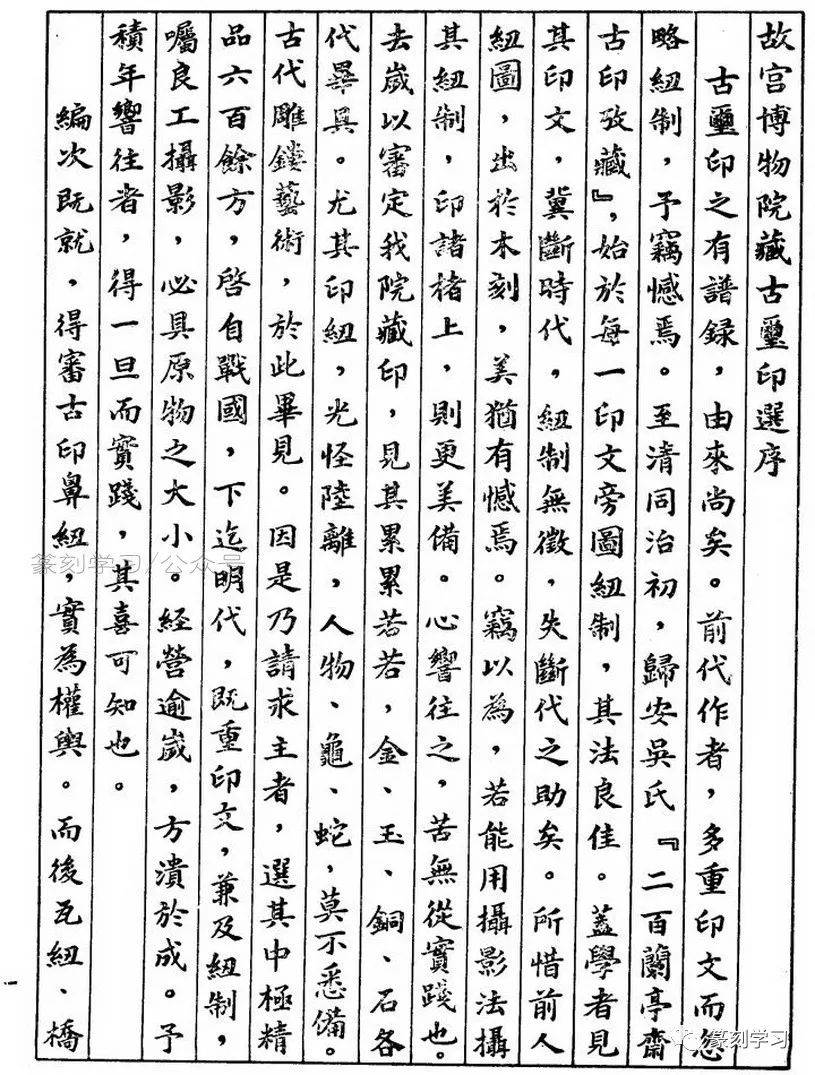 故宫博物院藏古璽印選序
古璽印之有譜録，由來尚矣。前代作者，多重印文而忽
略紐制，予竊憾焉。至清同治初，歸安吳氏『二百蘭亭齋
古印攷藏』，始於每一印文旁圖紐制，其法良佳。蓋學者見
其印文，冀斷時代，紐制無徵，失斷代之助矣。所惜前人
紐圖，出於木刻，美猶有憾焉。竊以為，若能用攝影法攝
其紐制，印諸楮上，則更美備。心響往之，苦無從實踐也。
去歲以審定我院藏印，見其累累若若，金、玉、銅、石各
代畢具。尤其印紐，光怪陸離，人物、龜、蛇，莫不悉備。
古代雕鏤藝術，於此畢見。因是乃請求主者，選其中極精
品六百餘方，啓自戰國，下迄明代，既重印文，兼及紐制，
囑良工攝影，必具原物之大小。経營逾歲，方潰於成。予
積年響往者，得一旦而實踐，其喜可知也。
編次既就，得審古印鼻紐，實為權輿。而後瓦紐、橋
篆刻学习/公众号
篆刻学习